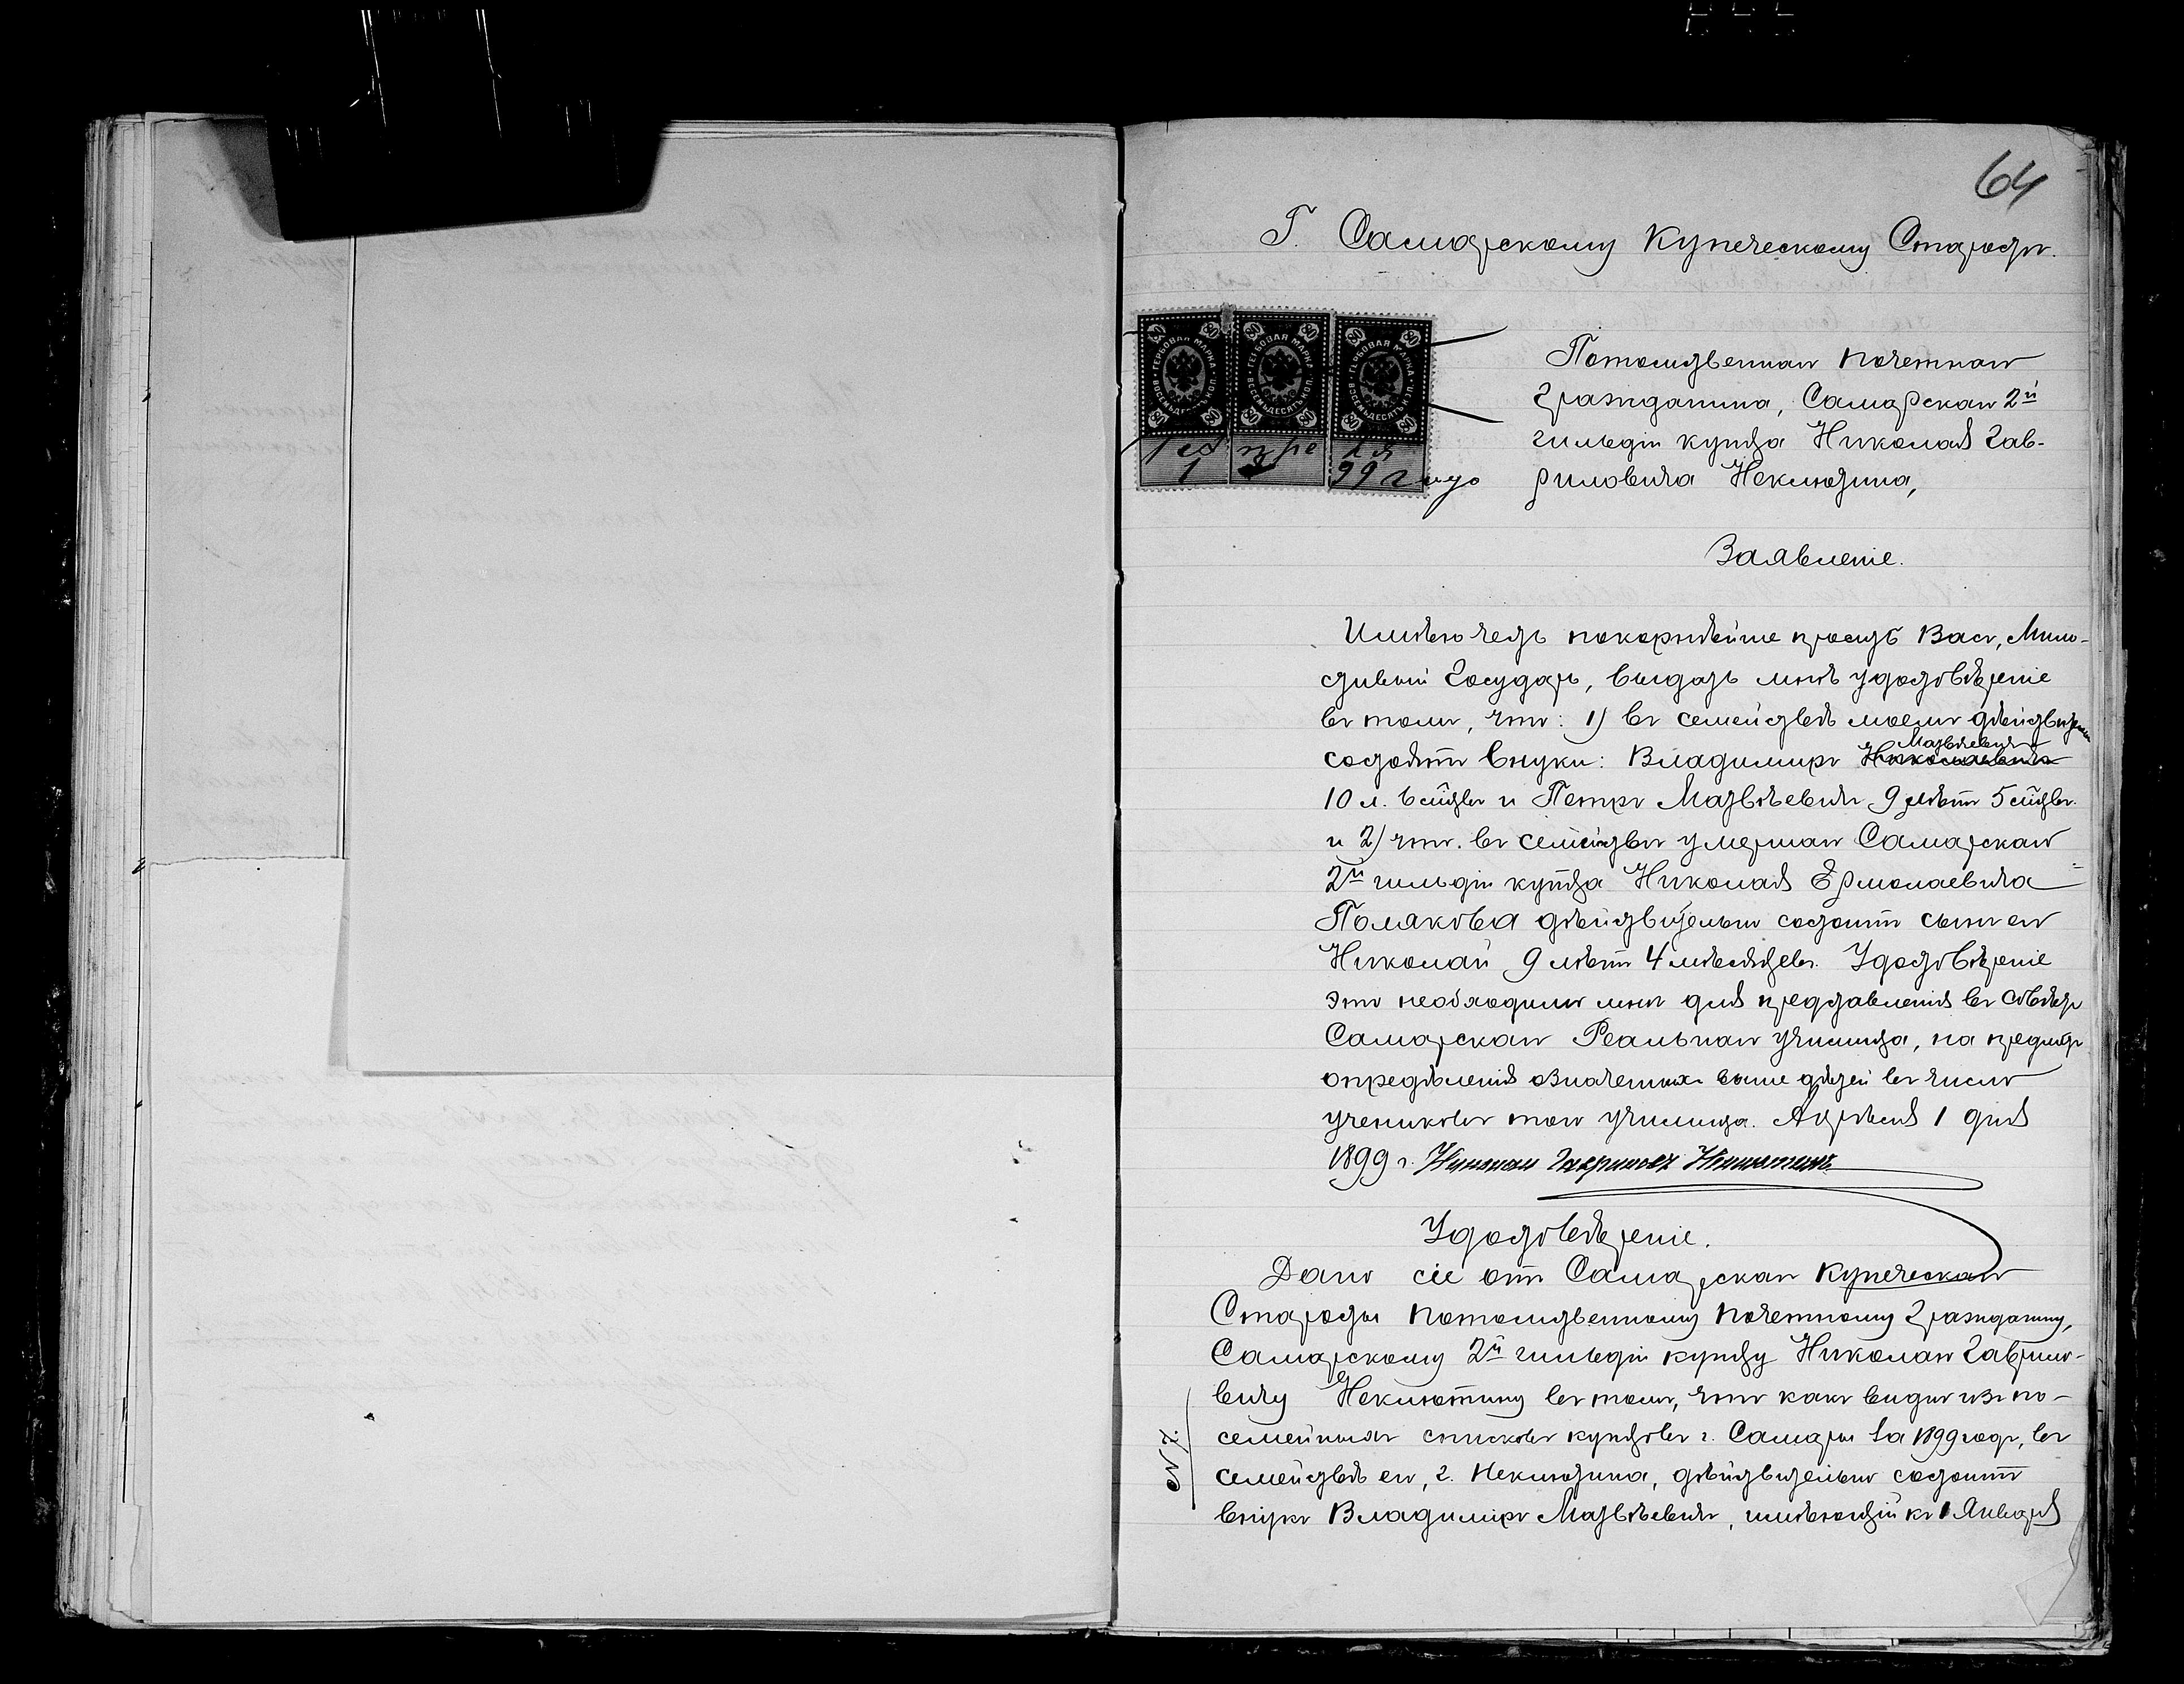 64
Г. Самарскому Купеческому Старостѣ.
ГЕРБОВАЯ МАРКА ВОСЕМЬДЕСЯТЪ КОП. 80
ГЕРБОВАЯ МАРКА ВОСЕМЬДЕСЯТЪ КОП. 80
ГЕРБОВАЯ МАРКА ВОСЕМЬДЕСЯТЪ КОП. 80
1 99 г
Потомственнаго почетнаго
гражданина, Самарскаго 2й
гильдіи купца Николая Гав-
риловича Неклютина,
Заявленіе.
Имѣю честь покорнѣйше просить Васъ, Мило-
стивый Государь, выдать мнѣ удостовѣреніе
въ томъ, что: 1) въ семействѣ моемъ дѣйствительно
состоятъ внуки: Владимиръ Матвѣевичъ
10 л. 6 мѣсцевъ и Петръ Матвѣевичъ 9 лѣтъ 5 мѣсцевъ
и 2) что въ семействѣ умершаго Самарскаго
2й гильдіи купца Николая Ермолаевича
Полякова дѣйствительно состоитъ сынъ его
Николай 9 лѣтъ 4 мѣсяцевъ. Удостовѣреніе
это необходимо мнѣ для представленія въ Совѣтъ
Самарскаго Реальнаго училища, на предметъ
опредѣленія означенныхъ выше дѣтей въ число
учениковъ того училища. Апрѣля 1 дня
1899 г. Николай Гавриловъ Неклютинъ
Удостовѣреніе.
Дано сіе отъ Самарскаго Купеческаго
Старосты потомственному почетному гражданину,
Самарскому 2й гильдіи купцу Николаю Гаврило-
вичу Неклютину въ томъ, что какъ видно изъ по-
семейныхъ списковъ купцовъ г. Самары за 1899 годъ, въ
семействѣ его, г. Неклютина, дѣйствительно состоитъ
внукъ Владиміръ Матвѣевичъ, имѣющій къ 1 Января
№ 7.